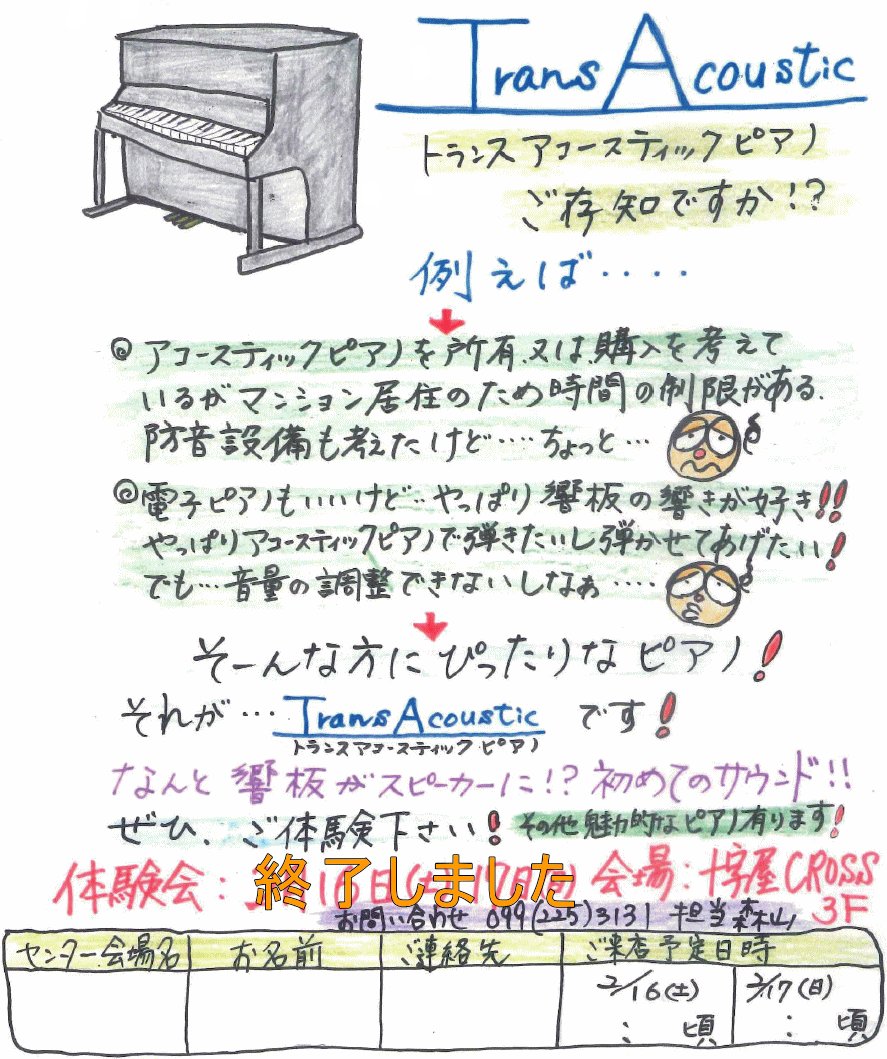 TransAcoustic
トランスアコースティックピアノ
ご存知ですか!?
例えば・・・・
◎アコースティックピアノを所有、又は、購入を考えて
いるがマンション居住のため時間の制限がある、
防音設備も考えたけど・・・・ちょっと・・・
◎電子ピアノもいいけど・・やっぱり響板の響きが好き!!
やっぱりアコースティックピアノで弾きたいし弾かせてあげたい!
でも・・・音量の調整できないしなぁ・・・・
そーんな方にぴったりなピアノ!
それが・・・TransAcousticです!
トランスアコースティックピアノ
なんと響板がスピーカーに!?初めてのサウンド!!
ぜひ、ご体験下さい! その他魅力的なピアノ有ります!
体験会: 16日 会場:十字屋CROSS
終了しました
3F
お問い合わせ 099(225)3131 担当 森山
センター・会場名 お名前 ご連絡先 ご来店予定日時
2/16(土) 2/17(日)
:頃 :頃